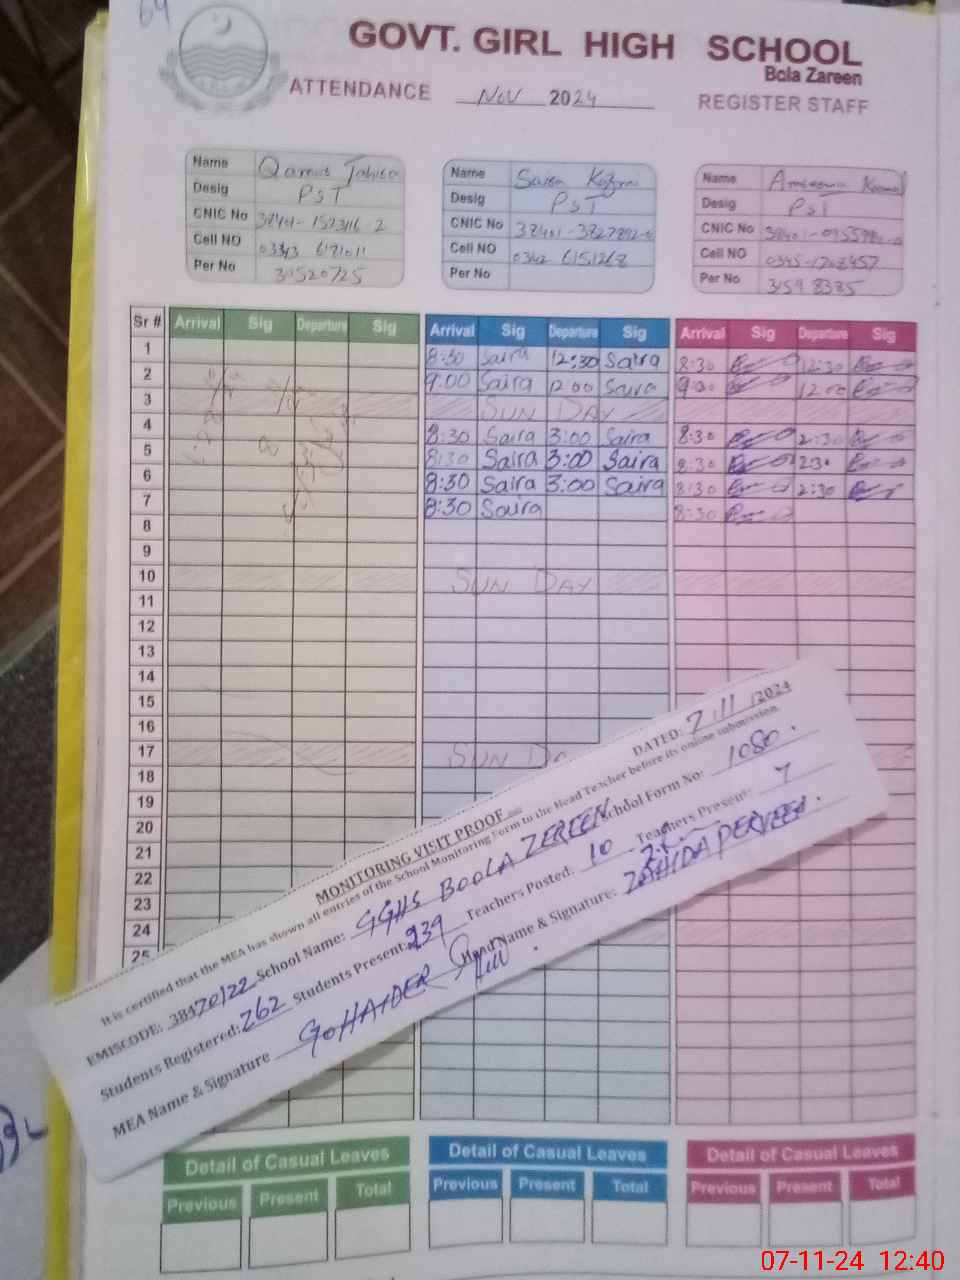 64
GOVT. GIRL HIGH SCHOOL
Bola Zareen
ATTENDANCE Nov 2024 REGISTER STAFF
Name
Desig PST
CNIC No
Cell NO
Per No 31520725
Name Saira
Desig PST
CNIC No
Cell NO 0342 6151268
Per No
Name
Desig PST
CNIC No
Cell NO
Per No
Sr # Arrival Sig Departure Sig Arrival Sig Departure Sig Arrival Sig Departure Sig
1 8:30 Saira 12:30 Saira 8:30 12:30
2 9:00 Saira 12:00 Saira 9:00 12:00
3 SUN DAY
4 8:30 Saira 3:00 Saira 8:30 2:30
5 8:30 Saira 3:00 Saira 8:30 2:30
6 8:30 Saira 3:00 Saira 8:30 2:30
7 8:30 Saira 8:30
8
9
10 SUN DAY
11
12
13
14
15
16
17 SUN DA
18
19
20
21
22
23
24
25
MONITORING VISIT PROOF DATED: 7/11/2024
It is certified that the MEA has shown all entries of the School Monitoring Form to the Head Teacher before its online submission.
EMISCODE: 38470122 School Name: GGHS BOOLA ZEREEN School Form No: 1080.
Students Registered: 262 Students Present: 239 Teachers Posted: 10 Teachers Present: 7
MEA Name & Signature Head Name & Signature: ZAHIDA PERVEEN.
Detail of Casual Leaves
Previous Present Total
Detail of Casual Leaves
Previous Present Total
Detail of Casual Leaves
Previous Present Total
07-11-24 12:40